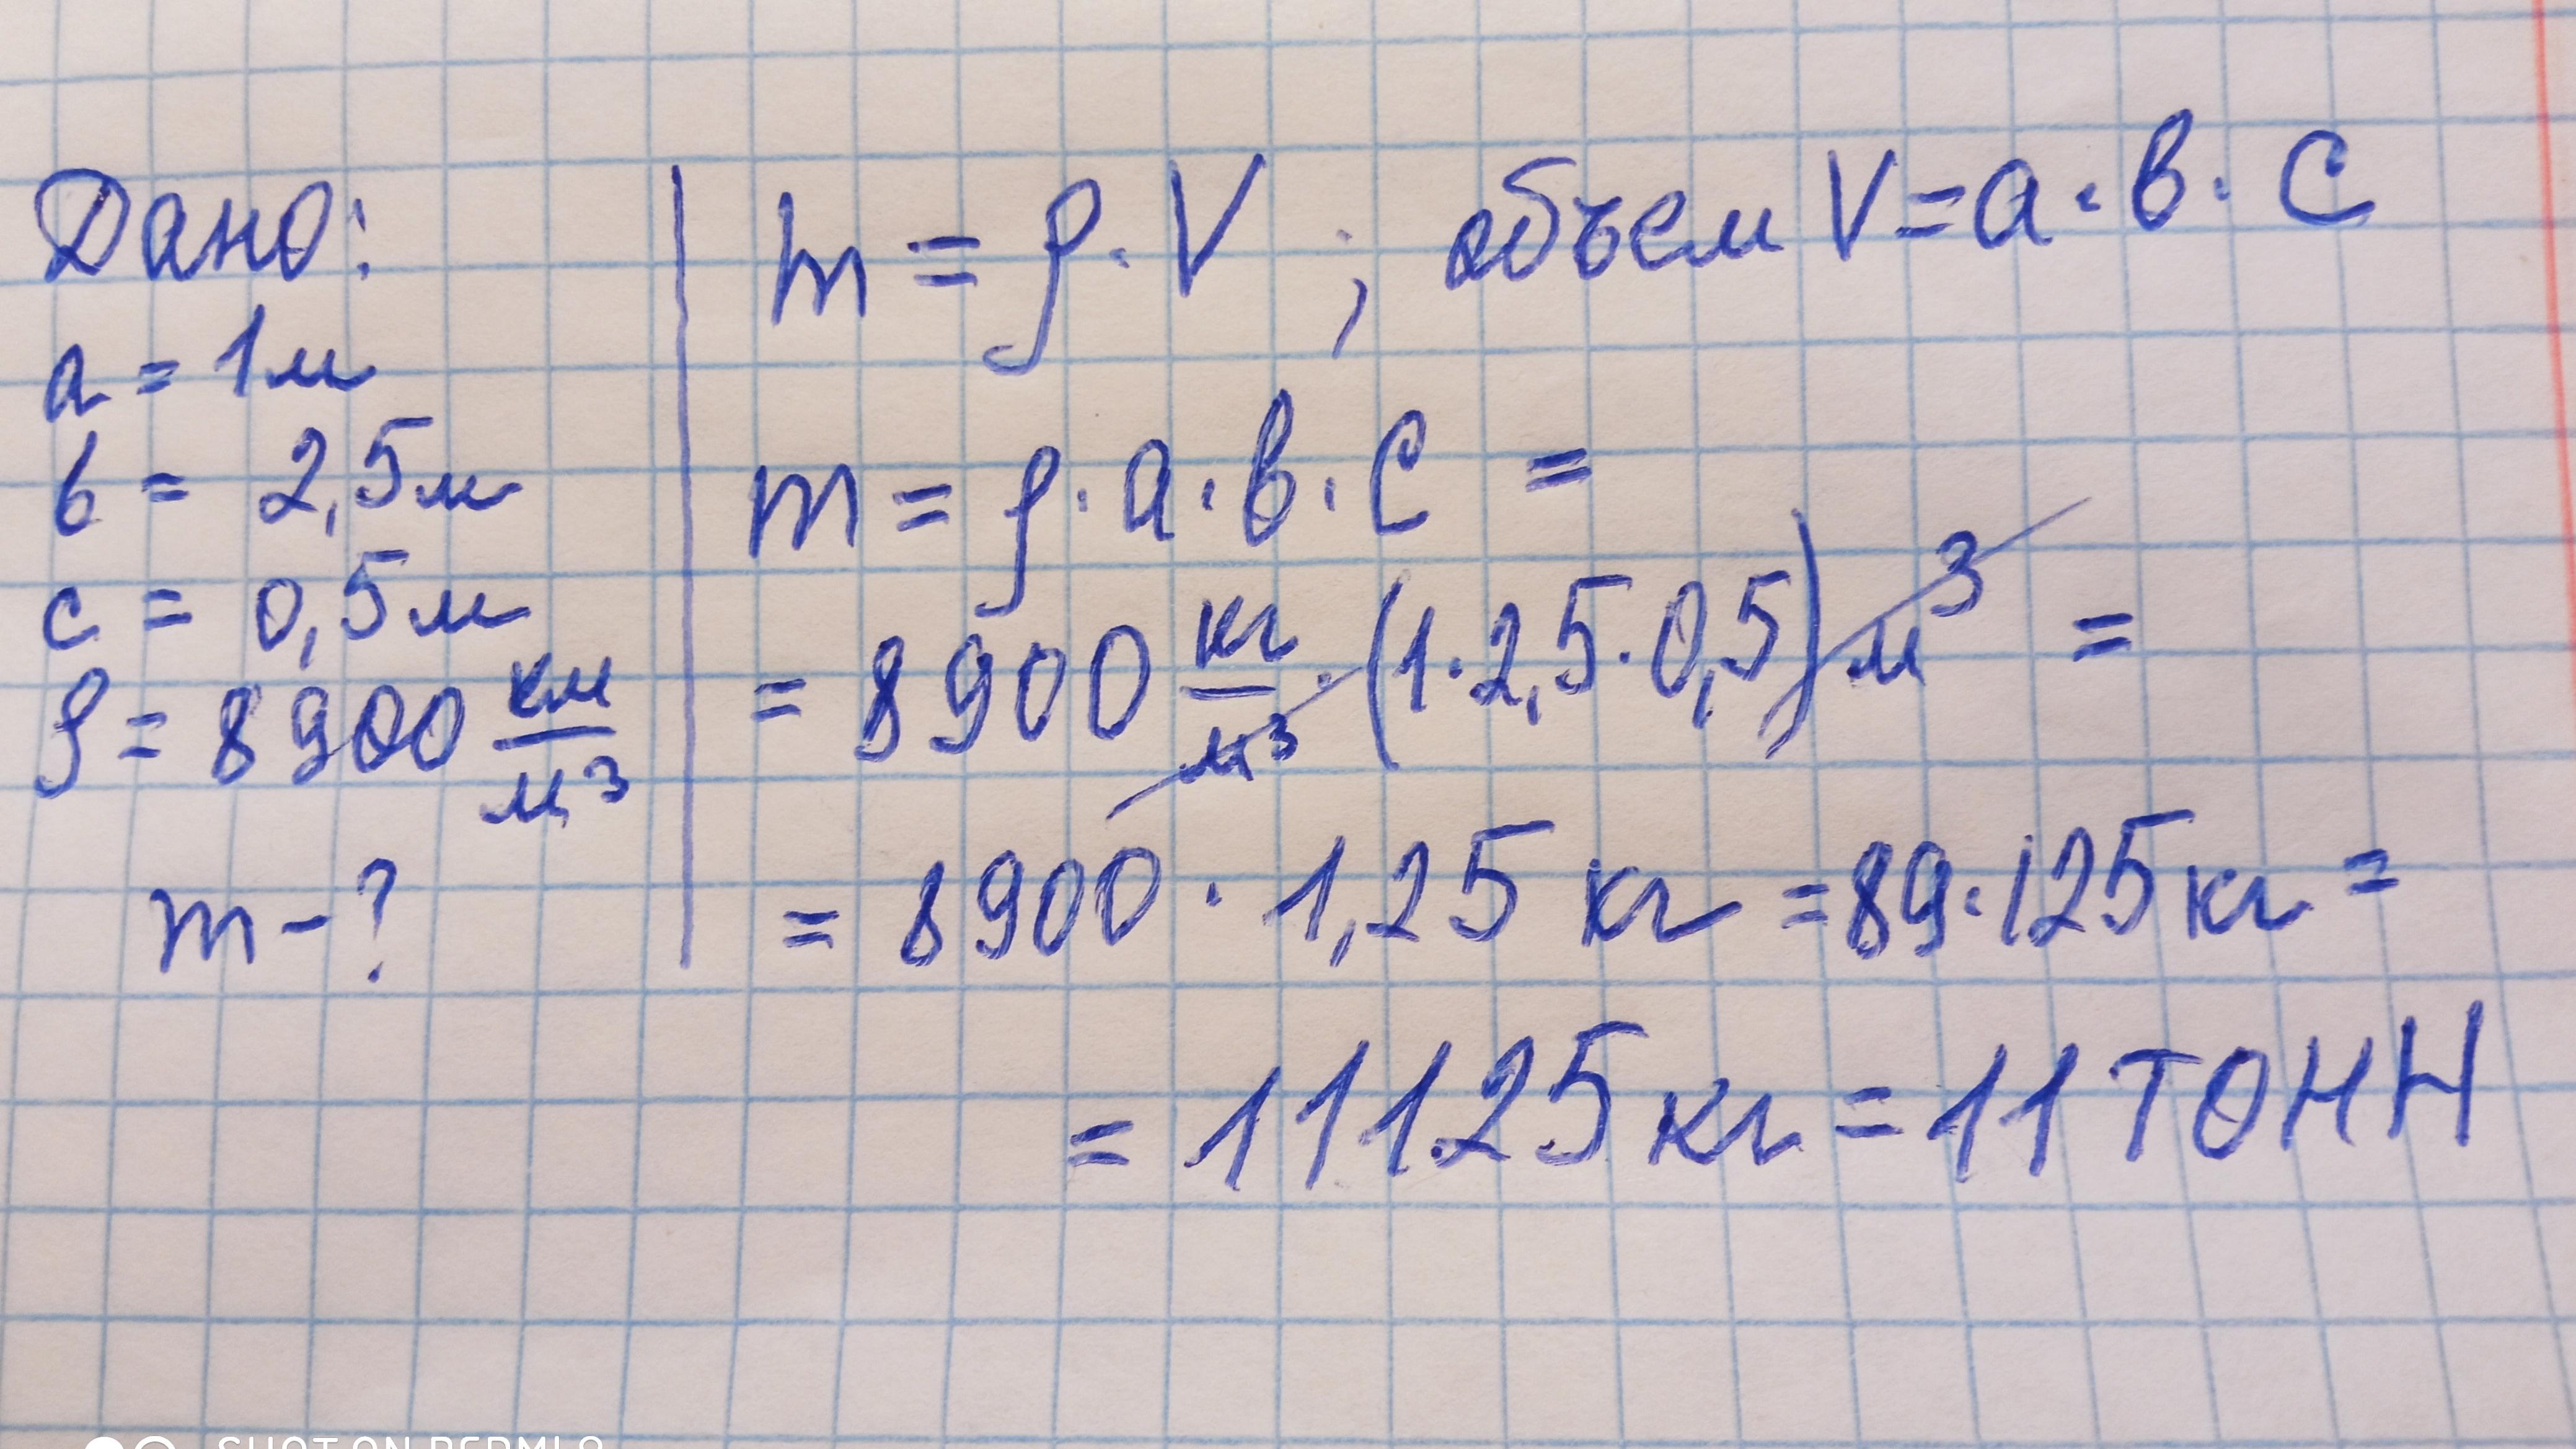 Дано:
a = 1м
b = 2,5м
c = 0,5м
ρ = 8900 км/м³
m - ?
m = ρ · V ; объем V = a · в · c
m = ρ · a · в · c =
= 8900 кг/м³ · (1 · 2,5 · 0,5) м³ =
= 8900 · 1,25 кг = 89 · 125 кг =
= 11125 кг = 11 ТОНН